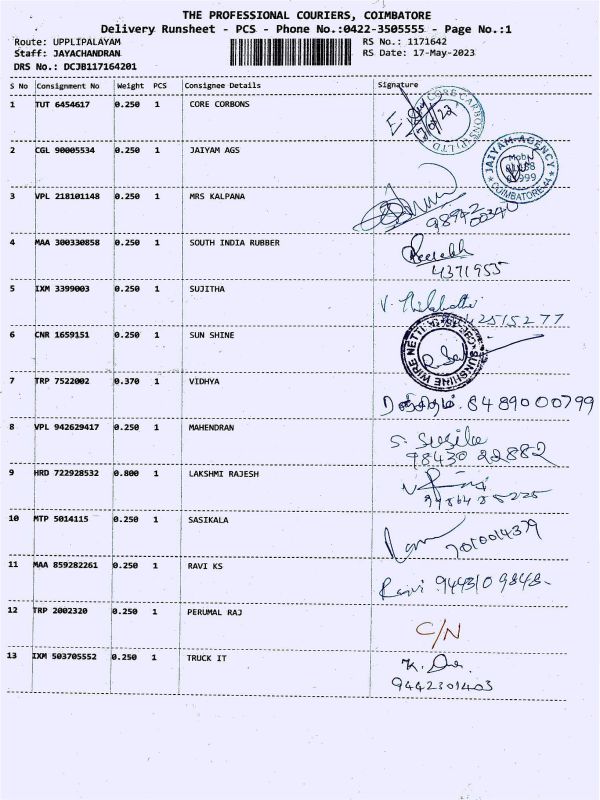 THE PROFESSIONAL COURIERS, COIMBATORE
Delivery Runsheet - PCS - Phone No.:0422-3505555 - Page No.:1
Route: UPPLIPALAYAM RS No.: 1171642
Staff: JAYACHANDRAN RS Date: 17-May-2023
DRS No.: DCJB117164201
S No Consignment No Weight PCS Consignee Details Signature
1 TUT 6454617 0.250 1 CORE CORBONS
2 CGL 90005534 0.250 1 JAIYAM AGS JAIYAM AGENCY COIMBATORE-44
3 VPL 218101148 0.250 1 MRS KALPANA
4 MAA 300330858 0.250 1 SOUTH INDIA RUBBER 4371955
5 IXM 3399003 0.250 1 SUJITHA
6 CNR 1659151 0.250 1 SUN SHINE SUNSHINE WIRE NETTING
7 TRP 7522002 0.370 1 VIDHYA 8489000799
8 VPL 942629417 0.250 1 MAHENDRAN S. Susila
98430 22882
9 HRD 722928532 0.800 1 LAKSHMI RAJESH
10 MTP 5014115 0.250 1 SASIKALA
11 MAA 859282261 0.250 1 RAVI KS Ravi 9443109848
12 TRP 2002320 0.250 1 PERUMAL RAJ C/N
13 IXM 503705552 0.250 1 TRUCK IT
9442301403